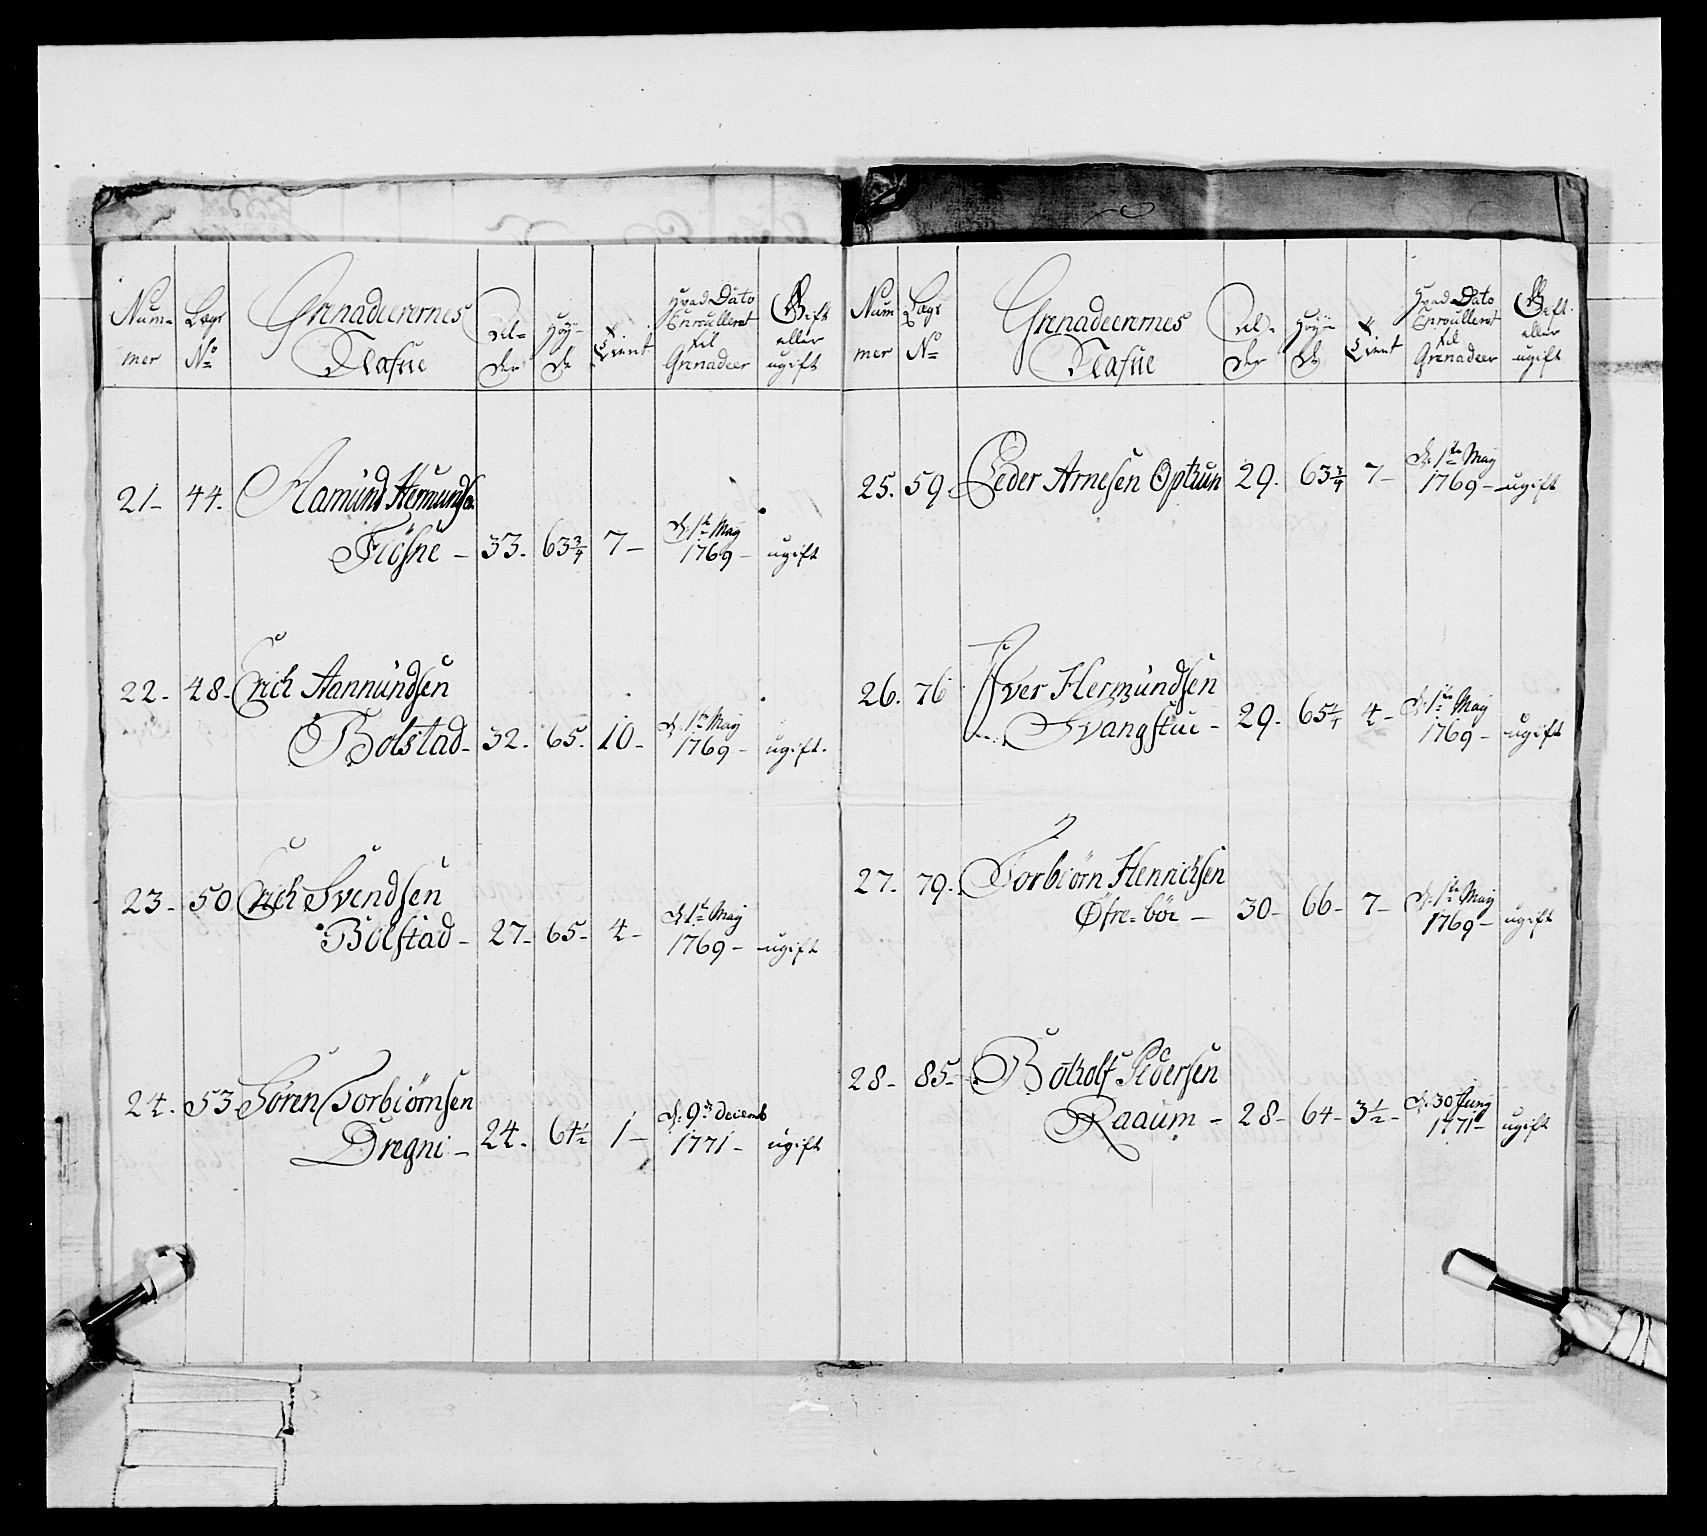 Num-
mer
Lægs
No
Grenadeerernes
Nafne
Al-
der
Høy-
de
Tient
Hvad Dato
Enroulleret
til
Grenadeer
Gift
eller
ugift
21- 44. Aamund Hermundsen
Fløsne - 33. 63¾ 7- d: 1te May 1769- ugift
22- 48- Erich Aamundsen
Bolstad- 32. 65. 10- d: 1te May 1769- ugift.
23- 50 Erich Svendsen
Bolstad- 27- 65- 4- d: 1te May 1769- ugift
24. 53 Søren Torbiørnsen
Dregni- 24. 64½ 1- d: 9de decemb 1771- ugift
Num
mer
Lægs
No
Grenadeerernes
Nafne
Al-
der
Høy-
de
Tient
Hvad Dato
Enroulleret
til
Grenadeer
Gift
eller
ugift
25. 59. Peder Arnesen Optun 29. 63¾ 7- d: 1te May 1769- ugift
26. 76 Iver Hermundsen
Svangstue- 29. 65¼ 4- d: 1te May 1769- ugift
27. 79. Torbiørn Henrichsen
Øfre-böe- 30- 66- 7- d: 1te May 1769- ugift
28- 85- Botholf Pedersen
Raaum- 28- 64- 3½- d: 30 Juny 1771- ugift